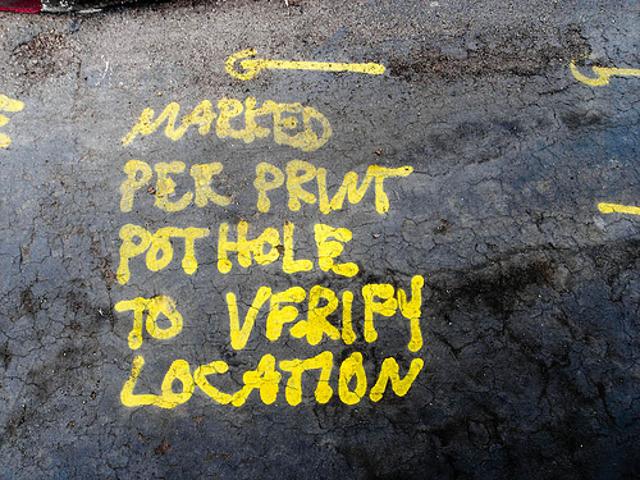 G
MARKED
PER PRINT
POTHOLE
TO VERIFY
LOCATION